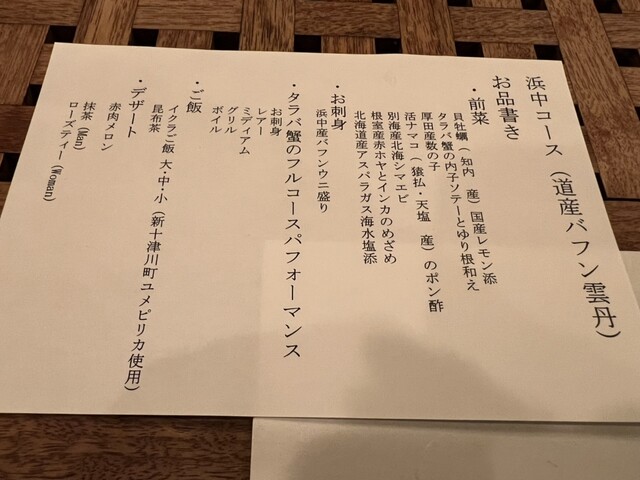 浜中コース（道産バフン雲丹）
お品書き
・前菜
貝牡蠣（知内　産）国産レモン添
タラバ蟹の内子ソテーとゆり根和え
厚田産数の子
活ナマコ（猿払・天塩　産）のポン酢
別海産北海シマエビ
根室産赤ホヤとインカのめざめ
北海道産アスパラガス海水塩添
・お刺身
浜中産バフンウニ盛り
・タラバ蟹のフルコースパフォーマンス
お刺身
レアー
ミディアム
グリル
ボイル
・ご飯
イクラご飯 大・中・小（新十津川町ユメピリカ使用）
昆布茶
・デザート
赤肉メロン
抹茶（Man）
ローズティー（Woman）